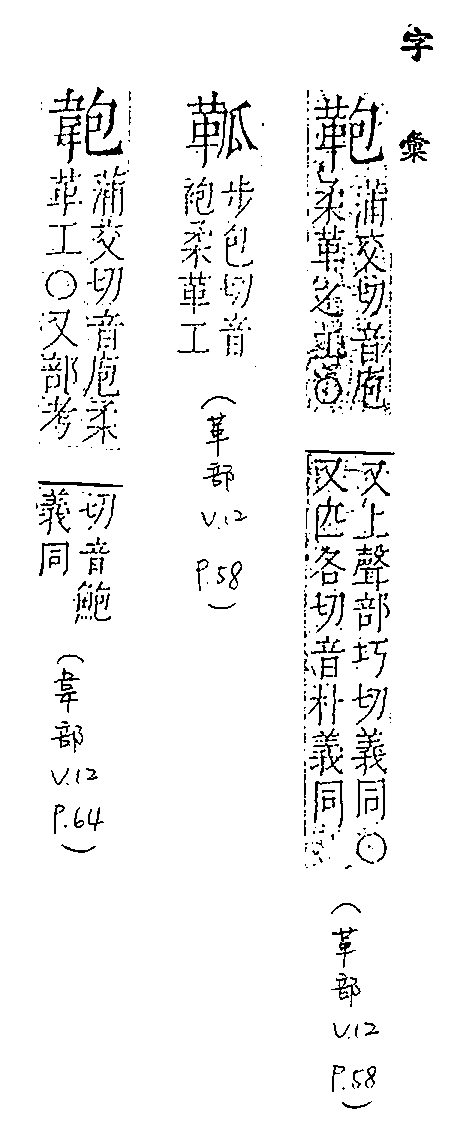 字彙
鞄
蒲交切音庖
柔革之工○
又上聲部巧切義同○
又匹各切音朴義同
(革部
V.12
P.58)
步包切音
袍柔革工
(革部
V.12
P.58)
蒲交切音庖柔
革工○又部考
切音鮑
義同
(韋部
V.12
P.64)